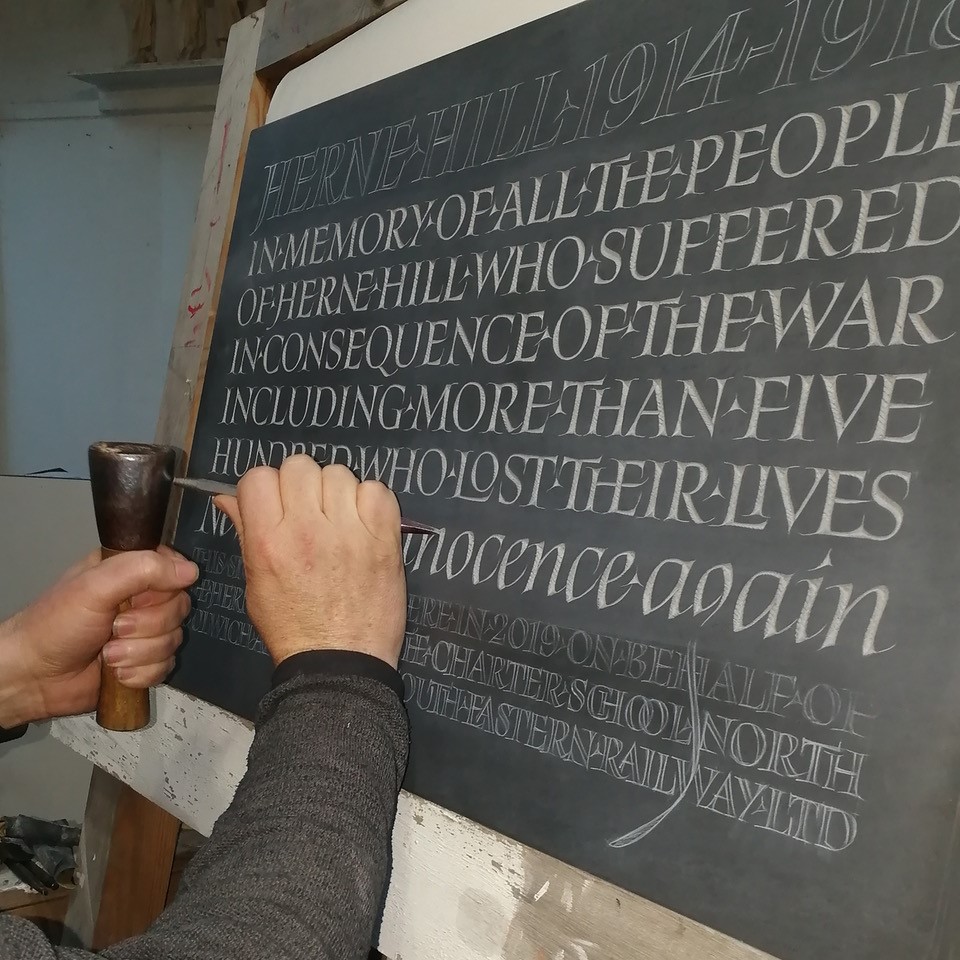 HERNE·HILL·1914–1918
IN·MEMORY·OF·ALL·THE·PEOPLE
OF·HERNE·HILL·WHO·SUFFERED
IN·CONSEQUENCE·OF·THE·WAR
INCLUDING·MORE·THAN·FIVE
HUNDRED·WHO·LOST·THEIR·LIVES
innocence·again
IN·2019·ON·BEHALF·OF
CHARTER·SCHOOL·NORTH
RAILWAY·LTD